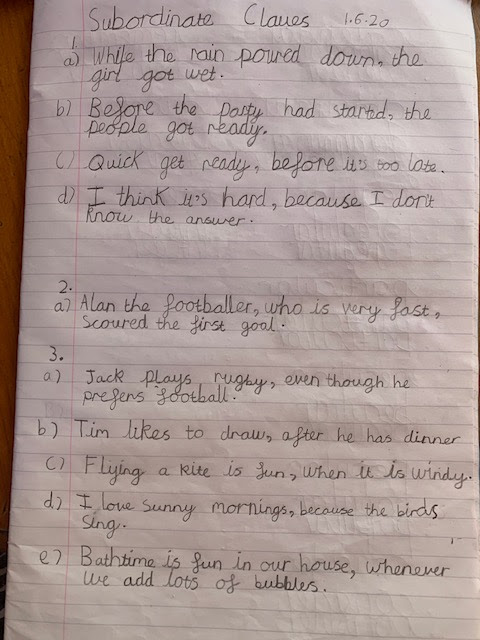 Subordinate Claues 1.6.20
1.
a) While the rain poured down, the
girl got wet.
b) Before the party had started, the
people got ready.
c) Quick get ready, before it's too late.
d) I think it's hard, because I don't
know the answer.
2.
a) Alan the footballer, who is very fast,
scoured the first goal.
3.
a) Jack plays rugby, even though he
prefers football.
b) Tim likes to draw, after he has dinner
c) Flying a kite is fun, when it is windy.
d) I love sunny mornings, because the birds
sing.
e) Bathtime is fun in our house, whenever
we add lots of bubbles.